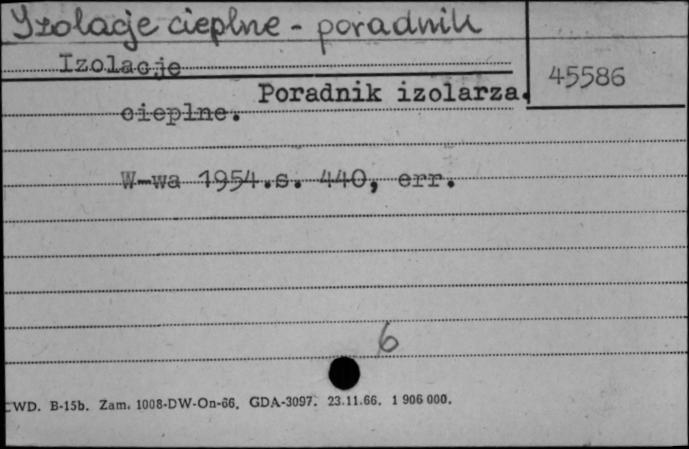 Izolacje cieplne - poradnik
Izolacje
45586
Poradnik izolarza.
cieplne.
W-wa 1954.s. 440, err.
6
CWD. B-15b. Zam. 1008-DW-On-66. GDA-3097. 23.11.66. 1 906 000.